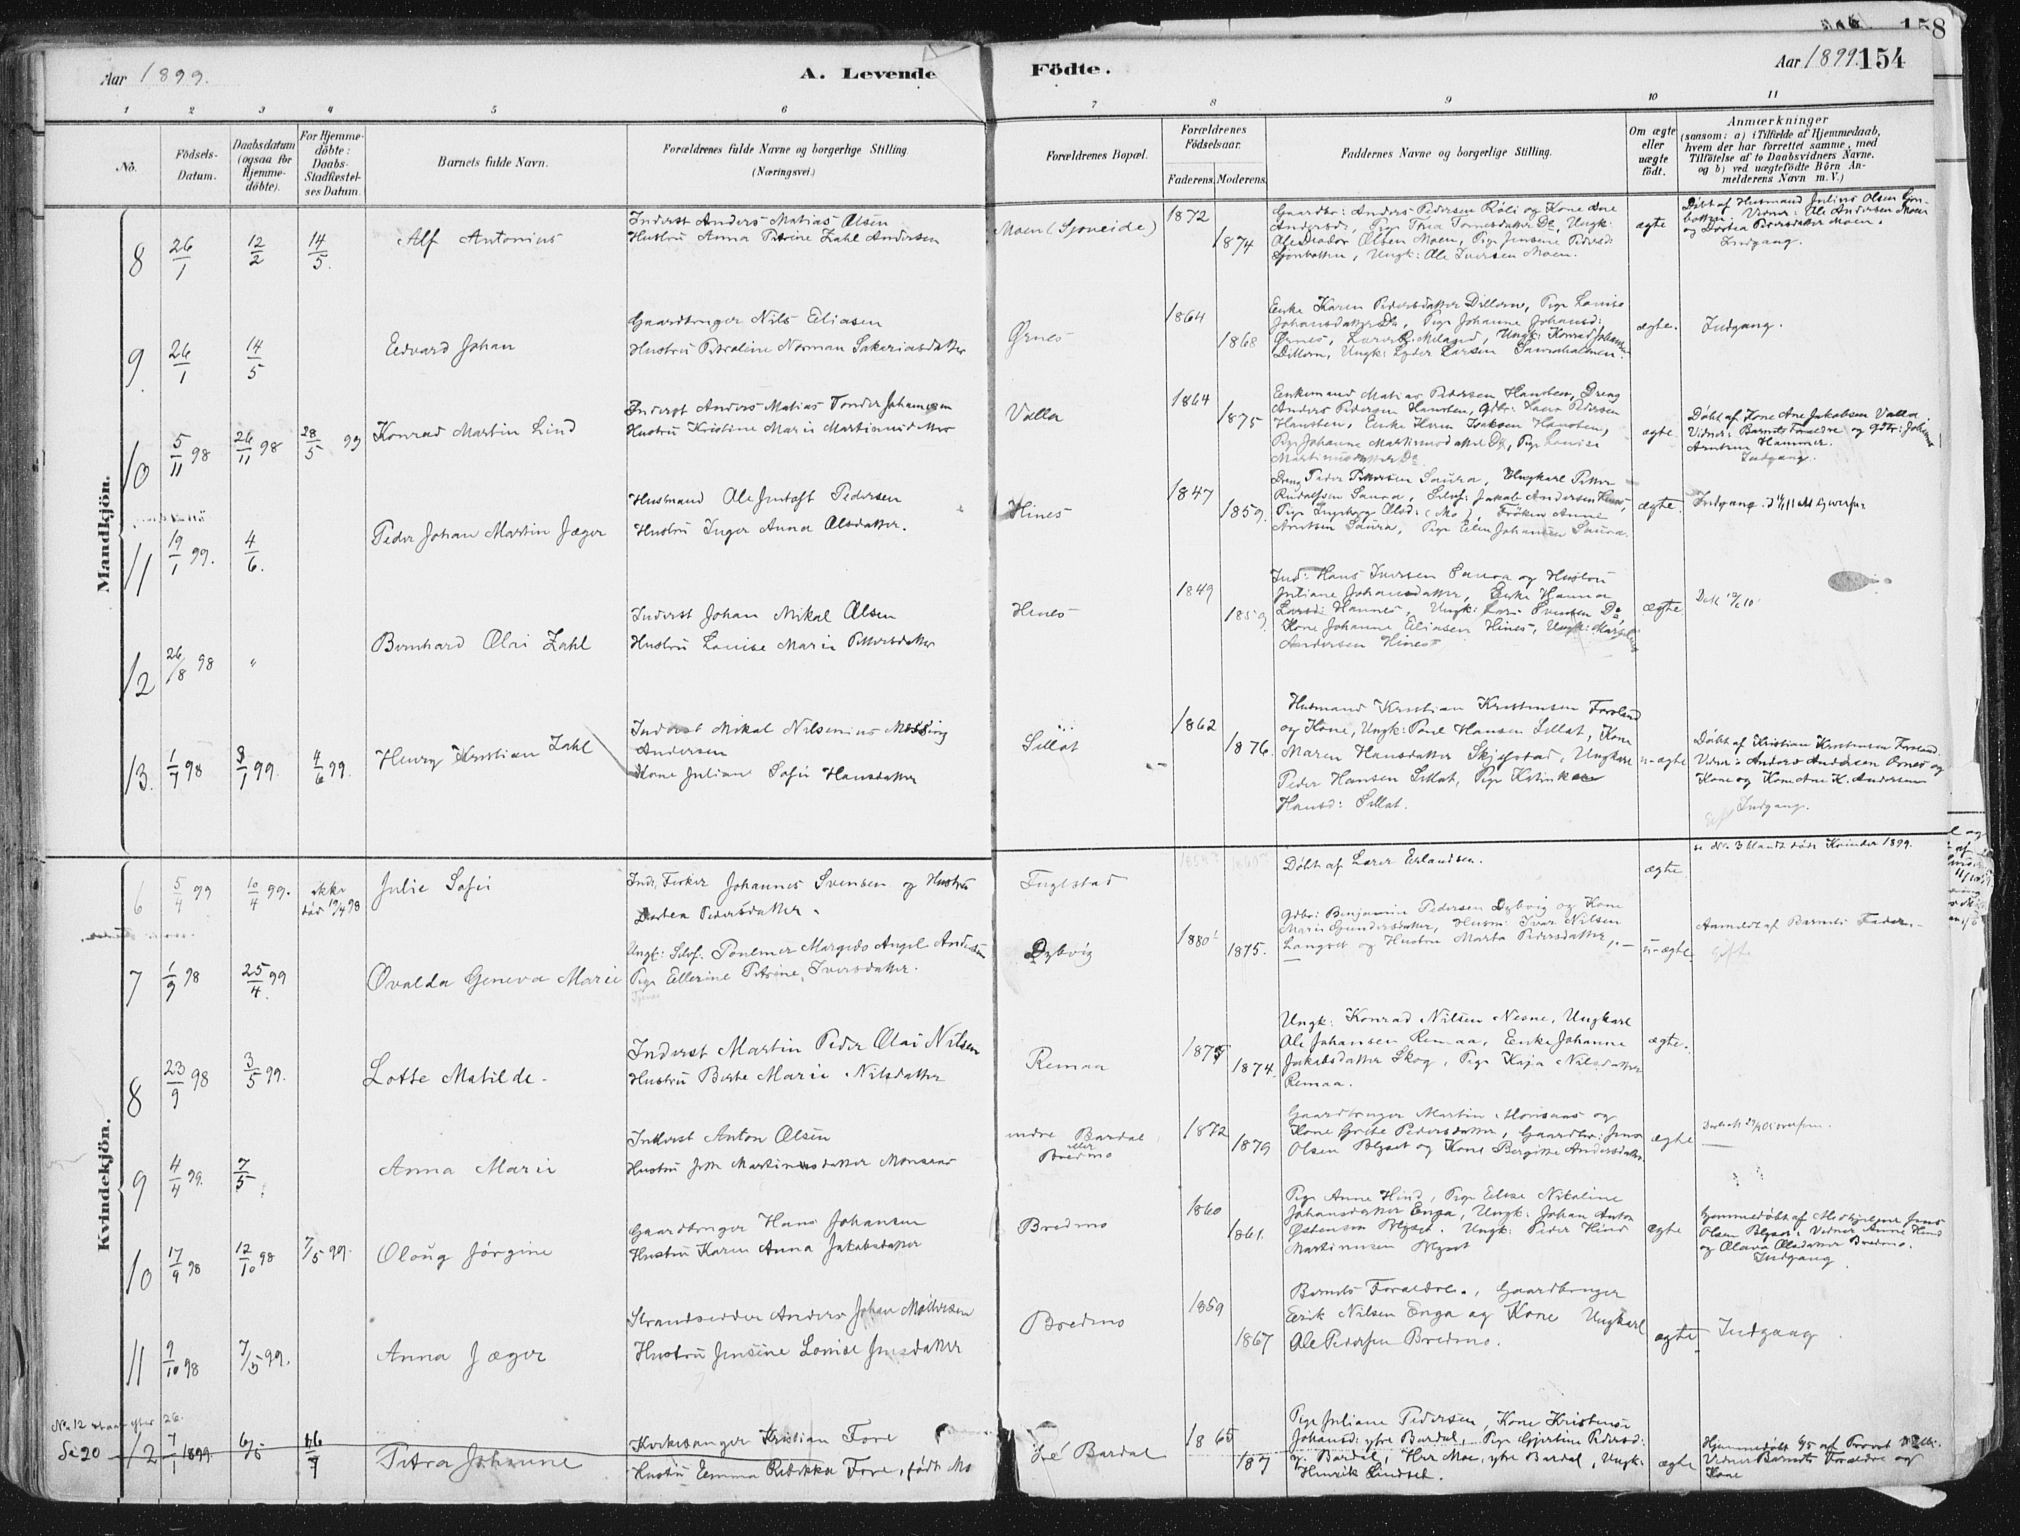 158
Aar 1899.
A. Levende Födte.
Aar 1899. 154
1 2 3 4 5 6 7 8 9 10 11
No.
Födsels-Datum.
Daabsdatum (ogsaa for Hjemme-döbte).
For Hjemme-döbte: Daabs-Stadfæstel-ses Datum.
Barnets fulde Navn.
Forældrenes fulde Navne og borgerlige Stilling
(Næringsvei.)
Forældrenes Bopæl.
Forældrenes Födselsaar.
Faderens. Moderens.
Faddernes Navne og borgerlige Stilling.
Om ægte eller uægte födt.
Anmærkninger
(saasom: a) i Tilfælde af Hjemmedaab,
hvem der har forrettet samme, med
Tilföielse af to Daabsvidners Navne,
og b) ved uægtefödte Börn An-
melderens Navn m. V.)
Mandkjön.
8 26/1 12/2 14/5. Alf Antonius
Inderst Anders Matias Olsen
Hustru Anna Petrine Zahl Andersen
Moen (Sjoneide) 1872 1874
Gaardbr: Anders Pedersen Røli og Kone Ane
Ole Deodor Olsen Moen, Pige Jensine Pedersd:
Sjonbotten, Ungk: Ole Iversen Moen.
ægte
Døbt af Husmand Julius Olsen
og Dortea Pedersdatter Moen.
Indgang.
9 26/1 14/5 Edvard Johan
Gaardbruger Nils Eliasen
Hustru Petroline Norman Sakariasdatter
Ørnes 1864 1868
Enke Karen Pedersdatter Dillern, Pige Louise
Johansdatter Do, Pige Johanne Johansd:
Dillern, Ungk: Lyder Larsen
ægte. Indgang.
10 5/11 98 26/11 98 28/5 99 Konrad Martin Lind
Inderst Anders Matias Tonder Johannesen
Hustru Kristine Marie Martinusdatter
Valla 1864 1875
Enkemand Matias Pedersen Hansten, Dreng
Anders Pedersen Hansten, Gdbr: Hans Pedersen
Hansten, Enke Karen Isaksen Hansten,
Pige Johanne Martinusdatter Do, Pige Louise
Martinusdatter Do
ægte
Døbt af Kone Ane Jakobsen Valla.
Vidner: Barnets Forældre og Gdbr: Johan
Arntsen Hammer.
Indgang.
11 19/1 99. 4/6. Peder Johan Martin Jæger
Husmand Ole Jentoft Pedersen
Hustru Inger Anna Olsdatter.
Hines 1847 1859.
Dreng Peder Pettersen Saura, Ungkarl Peter
Rudolfsen Saura, Selvf: Jakob Andersen Hines,
Pige Ingeborg Olsd: (Mo), Frøken Anne
Arntsen Saura, Pige Elen Johansen Saura.
ægte. Indgang.
12 26/8 98 " Bernhard Olai Zahl
Inderst Johan Mikal Olsen
Hustru Louise Marie Pettersdatter
Hines 1849 1859
Ind: Hans Iversen Saura og Hustru
Juliane Johansdatter, Enke Hanna
Larsd: Hannes, Ungk: Lars Svensen Do,
Kone Johanne Eliasen Hines, Ungk:
Andersen Hines
ægte
13. 1/7 98 8/1 99. 4/6 99. Henry Kristian Zahl
Inderst Mikal Nilsenius Messing
Andersen
Kone Julian Sofie Hansdatter
Sillat 1862 1876.
Husmand Kristian Kristensen Forsland
og Kone, Ungk: Paul Hansen Sillat, Kone
Maren Hansdatter Skjefstad, Ungkarl
Peder Hansen Sillat, Pige
Hansd: Sillat.
u-ægte
Døbt af Kristian Kristensen Forsland.
Vidner: Anders Andersen Ørnes og
Kone og Kone Ane K. Andersen
Indgang.
Kvindekjön.
6 5/4 99 10/4 99. ikke død 19/4 98 Julie Sofie
Ind. Fisker Johannes Svensen og Hustru
Dortea Pedersdatter.
Fuglstad 1859 1860
Døbt af Lærer Erlandsen.
ægte
se No. 3 blandt døde Kvinder 1899.
7 1/9 98 25/4 99 Ovalda Geneva Marie
Ungk: Selvf. Poulmer Margido Angel Andersen
Pige Ellerine Petrine Iversdatter.
Dybvig 1880 1875.
Gdbr: Benjamin Pedersen Dybvig og Kone
Marie Gundersdatter, Husm: Ivar Nilsen
Langset og Hustru Marta Pedersdatter
u-ægte
Anmeldt af Barnets Fader.
8 23/9 98 3/5 99. Lotte Matilde.
Inderst Martin Peder Olai Nilsen
Hustru Berte Marie Nilsdatter
Remaa 1875 1874.
Ungk: Konrad Nilsen Nesne, Ungkarl
Ole Johansen Remaa, Enke Johanne
Jakobsdatter Skog, Pige Kaja Nilsdatter
Remaa.
ægte.
9 4/4 99. 7/5 Anna Marie
Inderst Anton Olsen
Hustru Jette Martinusdatter Monsaas
indre Bardal
eller
Bredmo 1872 1879
Gaardbruger Martin Monsaas og
Kone Grete Pedersdatter, Gaardbr: Jens
Olsen Plyset og Kone Bergitte Andersdatter
ægte
10 17/9 98 12/10 98 7/5 99. Oloug Jørgine
Gaardbruger Hans Johansen
Hustru Karen Anna Jakobsdatter
Bredmo 1860 1861.
Pige Anne Hind, Pige Elise Nikoline
Johansdatter Enga, Ungk: Johan Anton
Østensen Plyset. Ungk: Peder Hind
Martinusen Plyset
ægte
Hjemmedøbt af Jens
Olsen Plyset. Vidner Anne Hind
og Olava Olsdatter Bredmo.
Indgang
11 9/10 98 7/5 99. Anna Jæger
Strandsidder Anders Johan Mathesen
Hustru Jensine Lovise Jensdatter
Bredmo 1859 1867
Barnets Forældre, Gaardbruger
Erik Nilsen Enga og Kone Ungkarl
Ole Pedersen Bredmo.
ægte Indgang
No. 12 staar efter 26.
Se 20 12 7/1 1899. 6/5 16/7 Petra Johanne
Kirkesanger Kristian Fore
Hustru Emma Rebekka Fore, født Mo
Bardal 1865 187
Pige Juliane Pedersen, Kone Kristense
Johansd: ytre Bardal, Pige Gjertine Pedersd:
y. Bardal, Herr Moe, ytre Bardal, Ungk:
Henrik Lindset.
ægte
Hjemmedøbt 6/5 af Provst
Vidner Barnets Forældre og
Kone